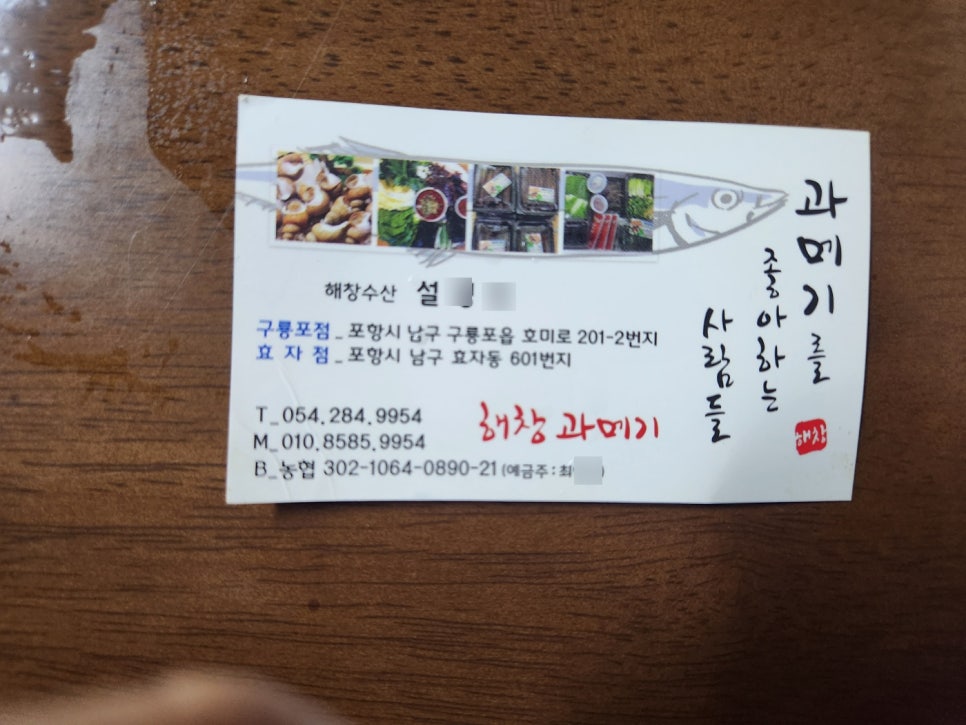 해창수산 설
구룡포점_ 포항시 남구 구룡포읍 호미로 201-2번지
효 자 점_ 포항시 남구 효자동 601번지
T_054.284.9954
M_010.8585.9954
B_농협 302-1064-0890-21 (예금주 : 최
해창 과메기
과메기를
좋아하는
사람들
해창